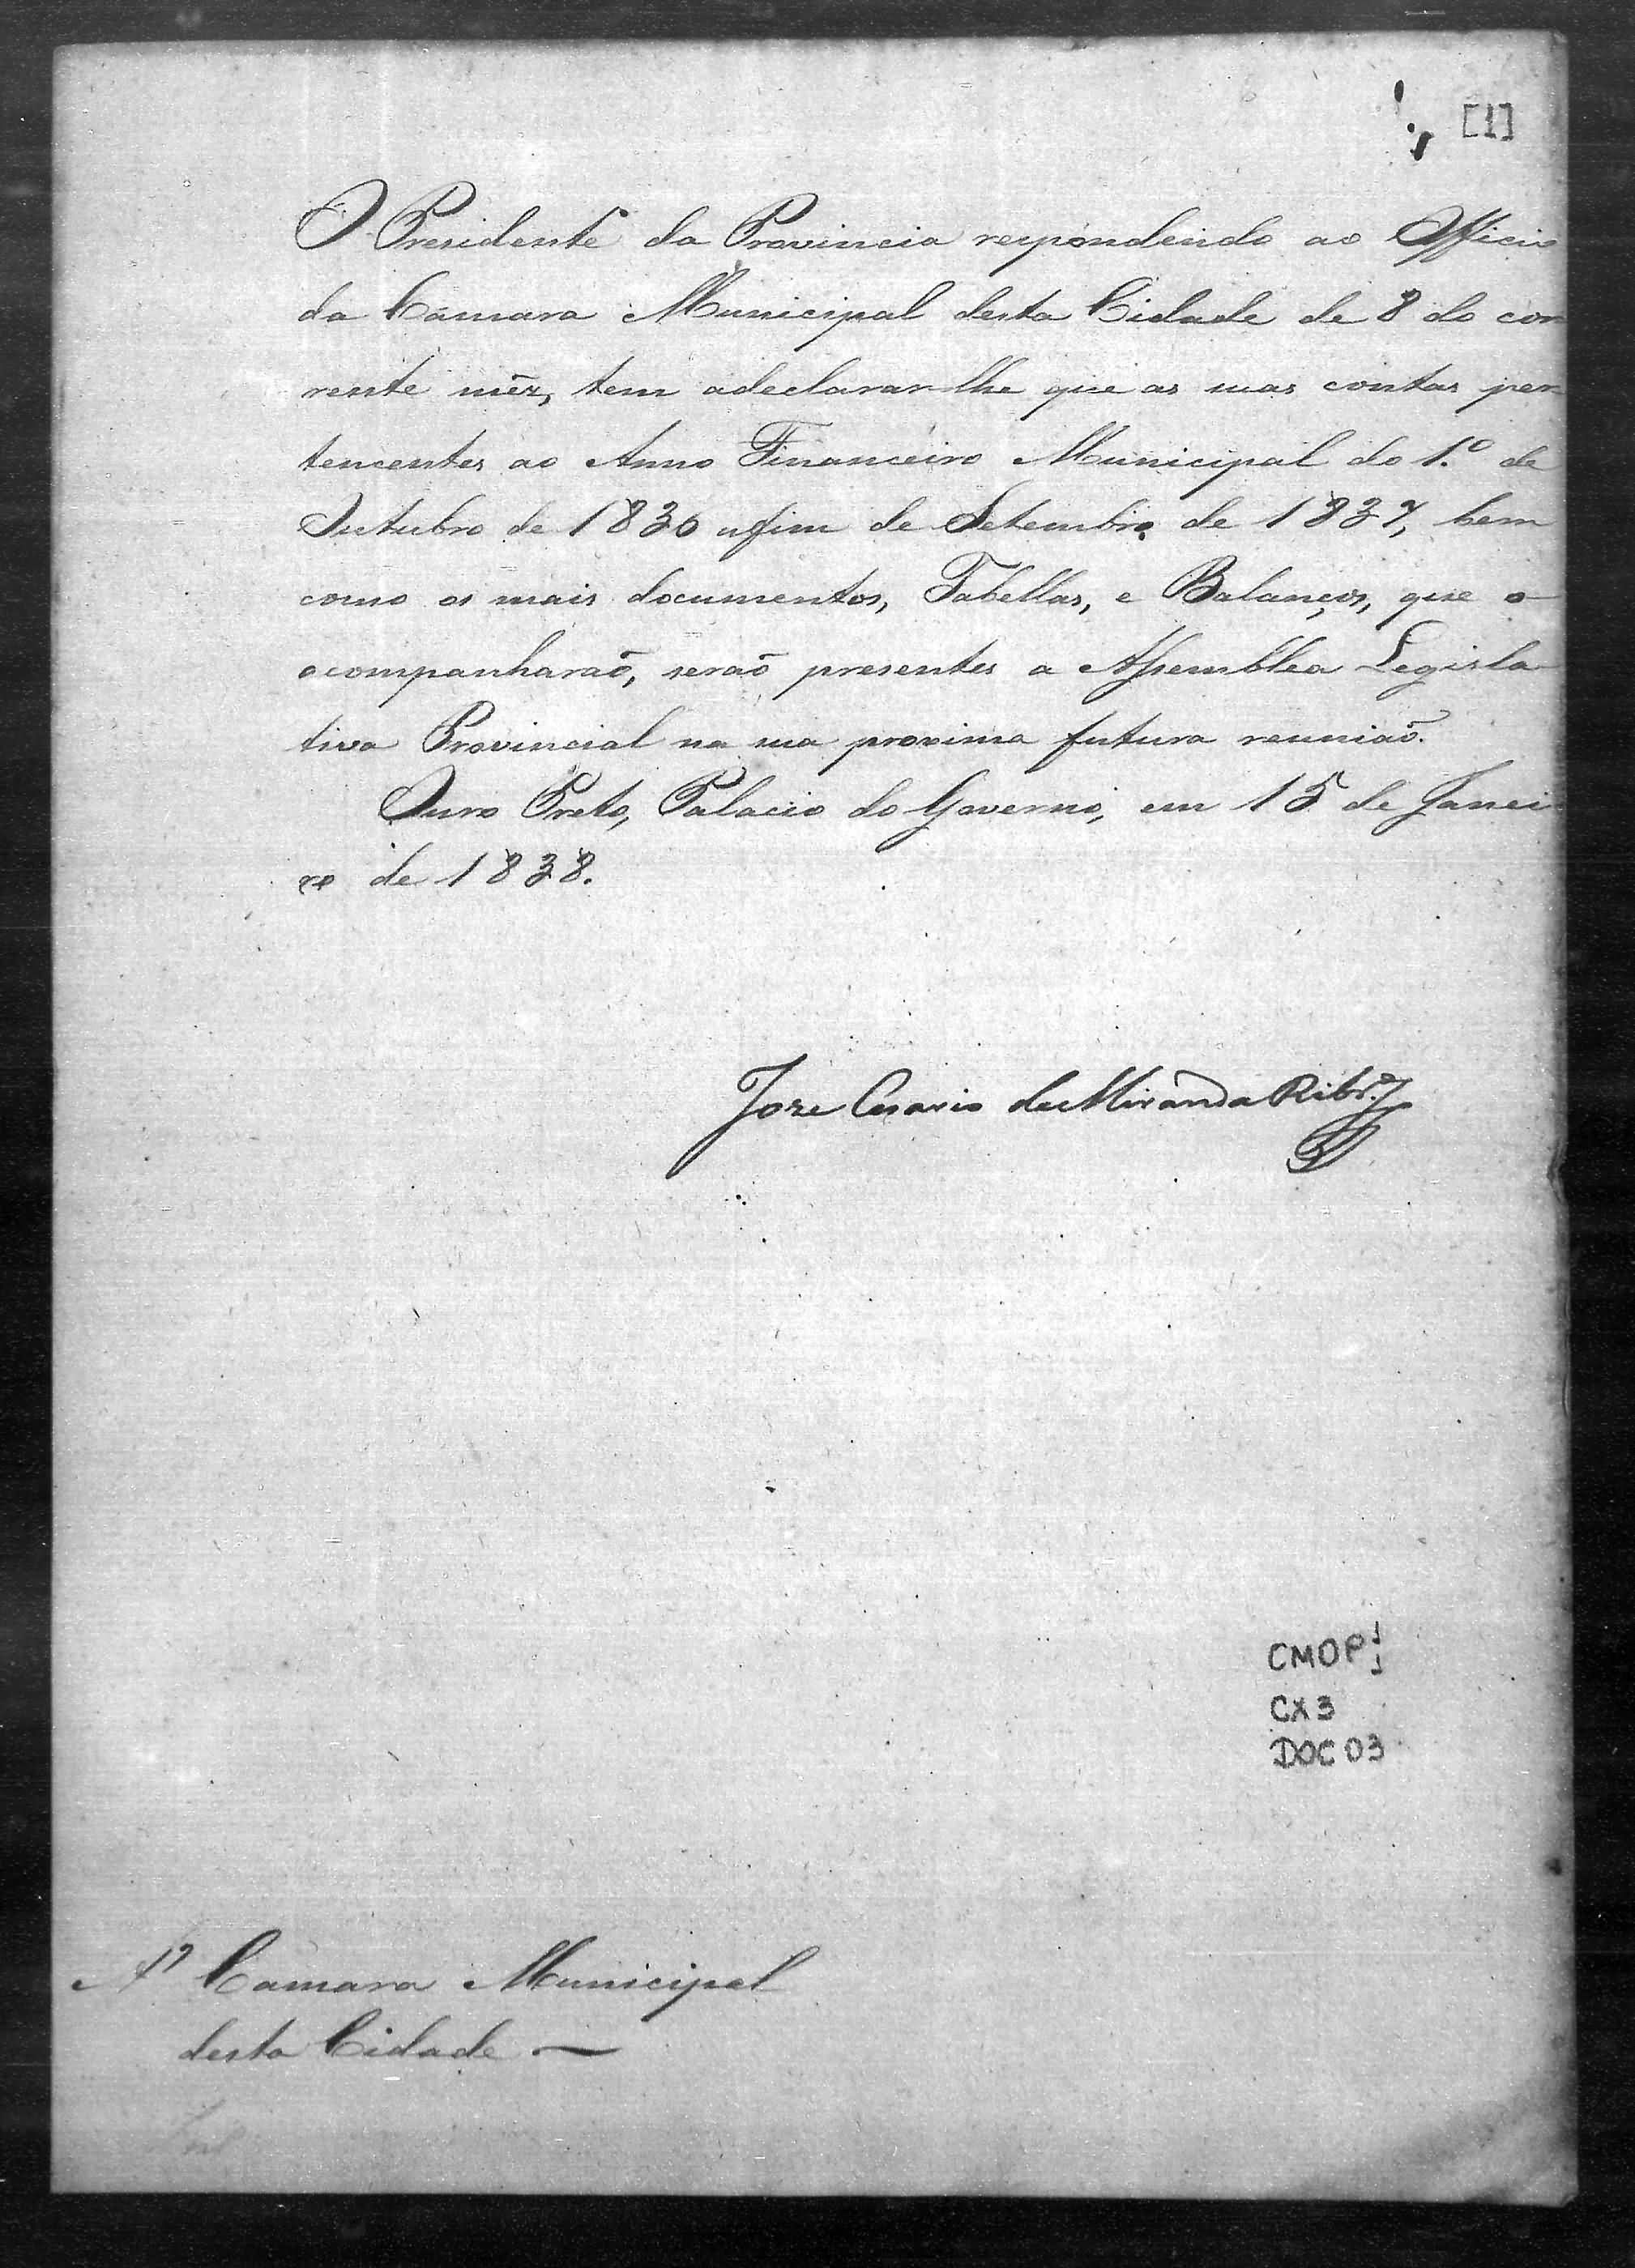 [1]
O Presidente da Provincia respondendo ao Officio
da Camara Municipal desta Cidade de 8 do cor
rente mêz, tem adeclarar-lhe que as suas contas per
tencentes ao Anno Financeiro Municipal do 1.º de
Outubro de 1836 a fim de Setembro de 1837, bem
como os mais documentos, Tabellas, e Balanços, que o
acompanharaõ, seraõ presentes a Assemblea Legisla
tiva Provincial na sua proxima futura reuniaõ.
Ouro Preto, Palacio do Governo, em 15 de Janei
ro de 1838.
Jose Cesario de Miranda Ribr.º
CMOP 1/1
CX 3
DOC 03
A' Camara Municipal
desta Cidade —